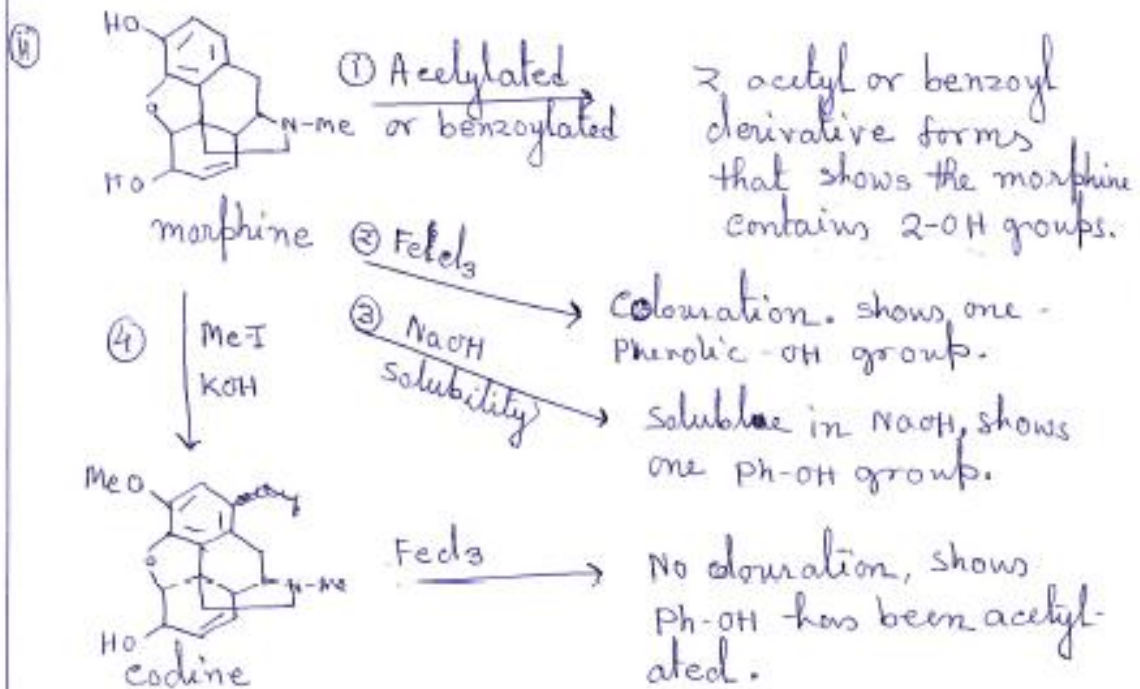 ii
HO
O
N-Me
HO
morphine
① Acetylated
or benzoylated
2 acetyl or benzoyl
derivative forms
that shows the morphine
contains 2-OH groups.
② FeCl3
Colouration. shows one -
Phenolic -OH group.
③ NaOH
Solubility
Soluble in NaOH, shows
one Ph-OH group.
④
Me-I
KOH
MeO
O
N-Me
HO
Codine
Fecl3
No olouration, shows
Ph-OH has been acetyl-
ated.